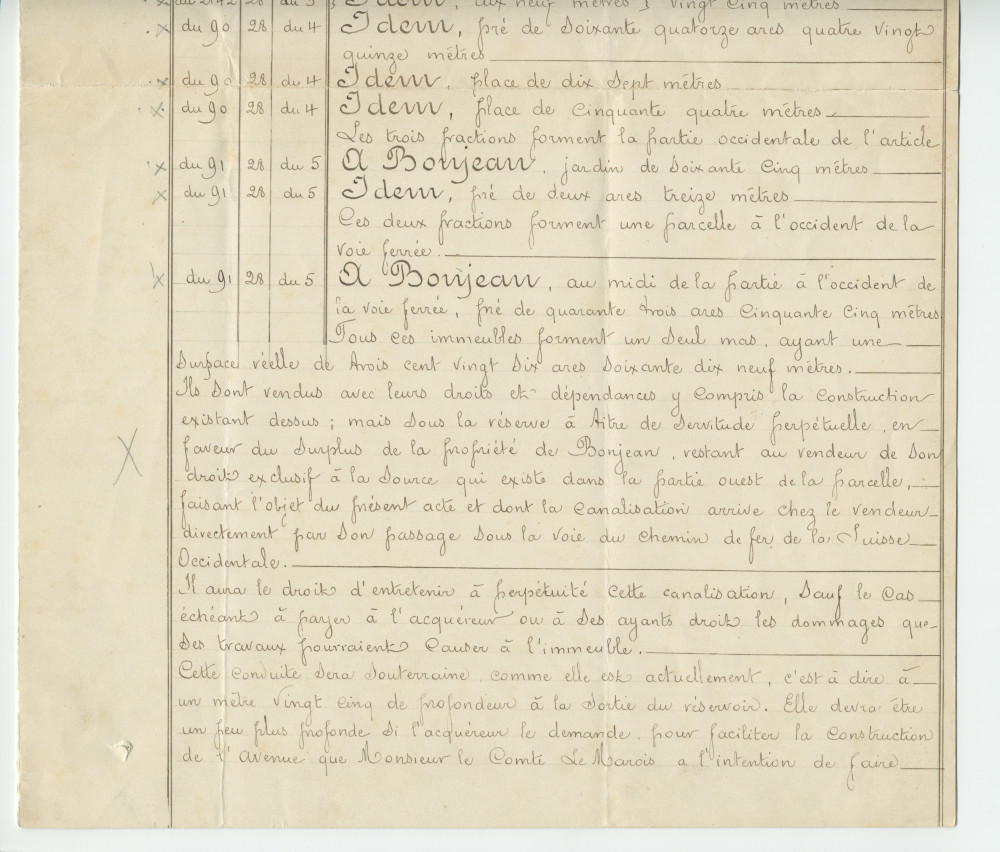 Idem, dix neuf mètres, vingt cinq mètres
x du 90 28 du 4 Idem, pré de soixante quatorze ares quatre vingt
quinze mètres
x du 90 28 du 4 Idem, place de dix sept mètres
x du 90 28 du 4 Idem, place de cinquante quatre mètres
Les trois fractions forment la partie occidentale de l'article
x du 91 28 du 5 A Bonjean, jardin de soixante cinq mètres
x du 91 28 du 5 Idem, pré de deux ares treize mètres
Ces deux fractions forment une parcelle à l'occident de la
voie ferrée.
x du 91 28 du 5 A Bonjean, au midi de la partie à l'occident de
la voie ferrée, pré de quarante trois ares cinquante cinq mètres
Tous ces immeubles forment un seul mas, ayant une
surface réelle de trois cent vingt six ares soixante dix neuf mètres.
Ils sont vendus avec leurs droits et dépendances y compris la construction
existant dessus ; mais sous la réserve à titre de servitude perpétuelle, en
faveur du surplus de la propriété de Bonjean, restant au vendeur de son
droit exclusif à la source qui existe dans la partie ouest de la parcelle,
faisant l'objet du présent acte et dont la canalisation arrive chez le vendeur
directement par son passage sous la voie du chemin de fer de la Suisse
Occidentale.
Il aura le droit d'entretenir à perpétuité cette canalisation, sauf le cas
échéant à payer à l'acquéreur ou à ses ayants droit les dommages que
ses travaux pourraient causer à l'immeuble.
Cette conduite sera souterraine, comme elle est actuellement, c'est à dire à
un mètre vingt cinq de profondeur à la sortie du réservoir. Elle devra être
un peu plus profonde si l'acquéreur le demande, pour faciliter la construction
de l'avenue que Monsieur le Comte Le Marois a l'intention de faire